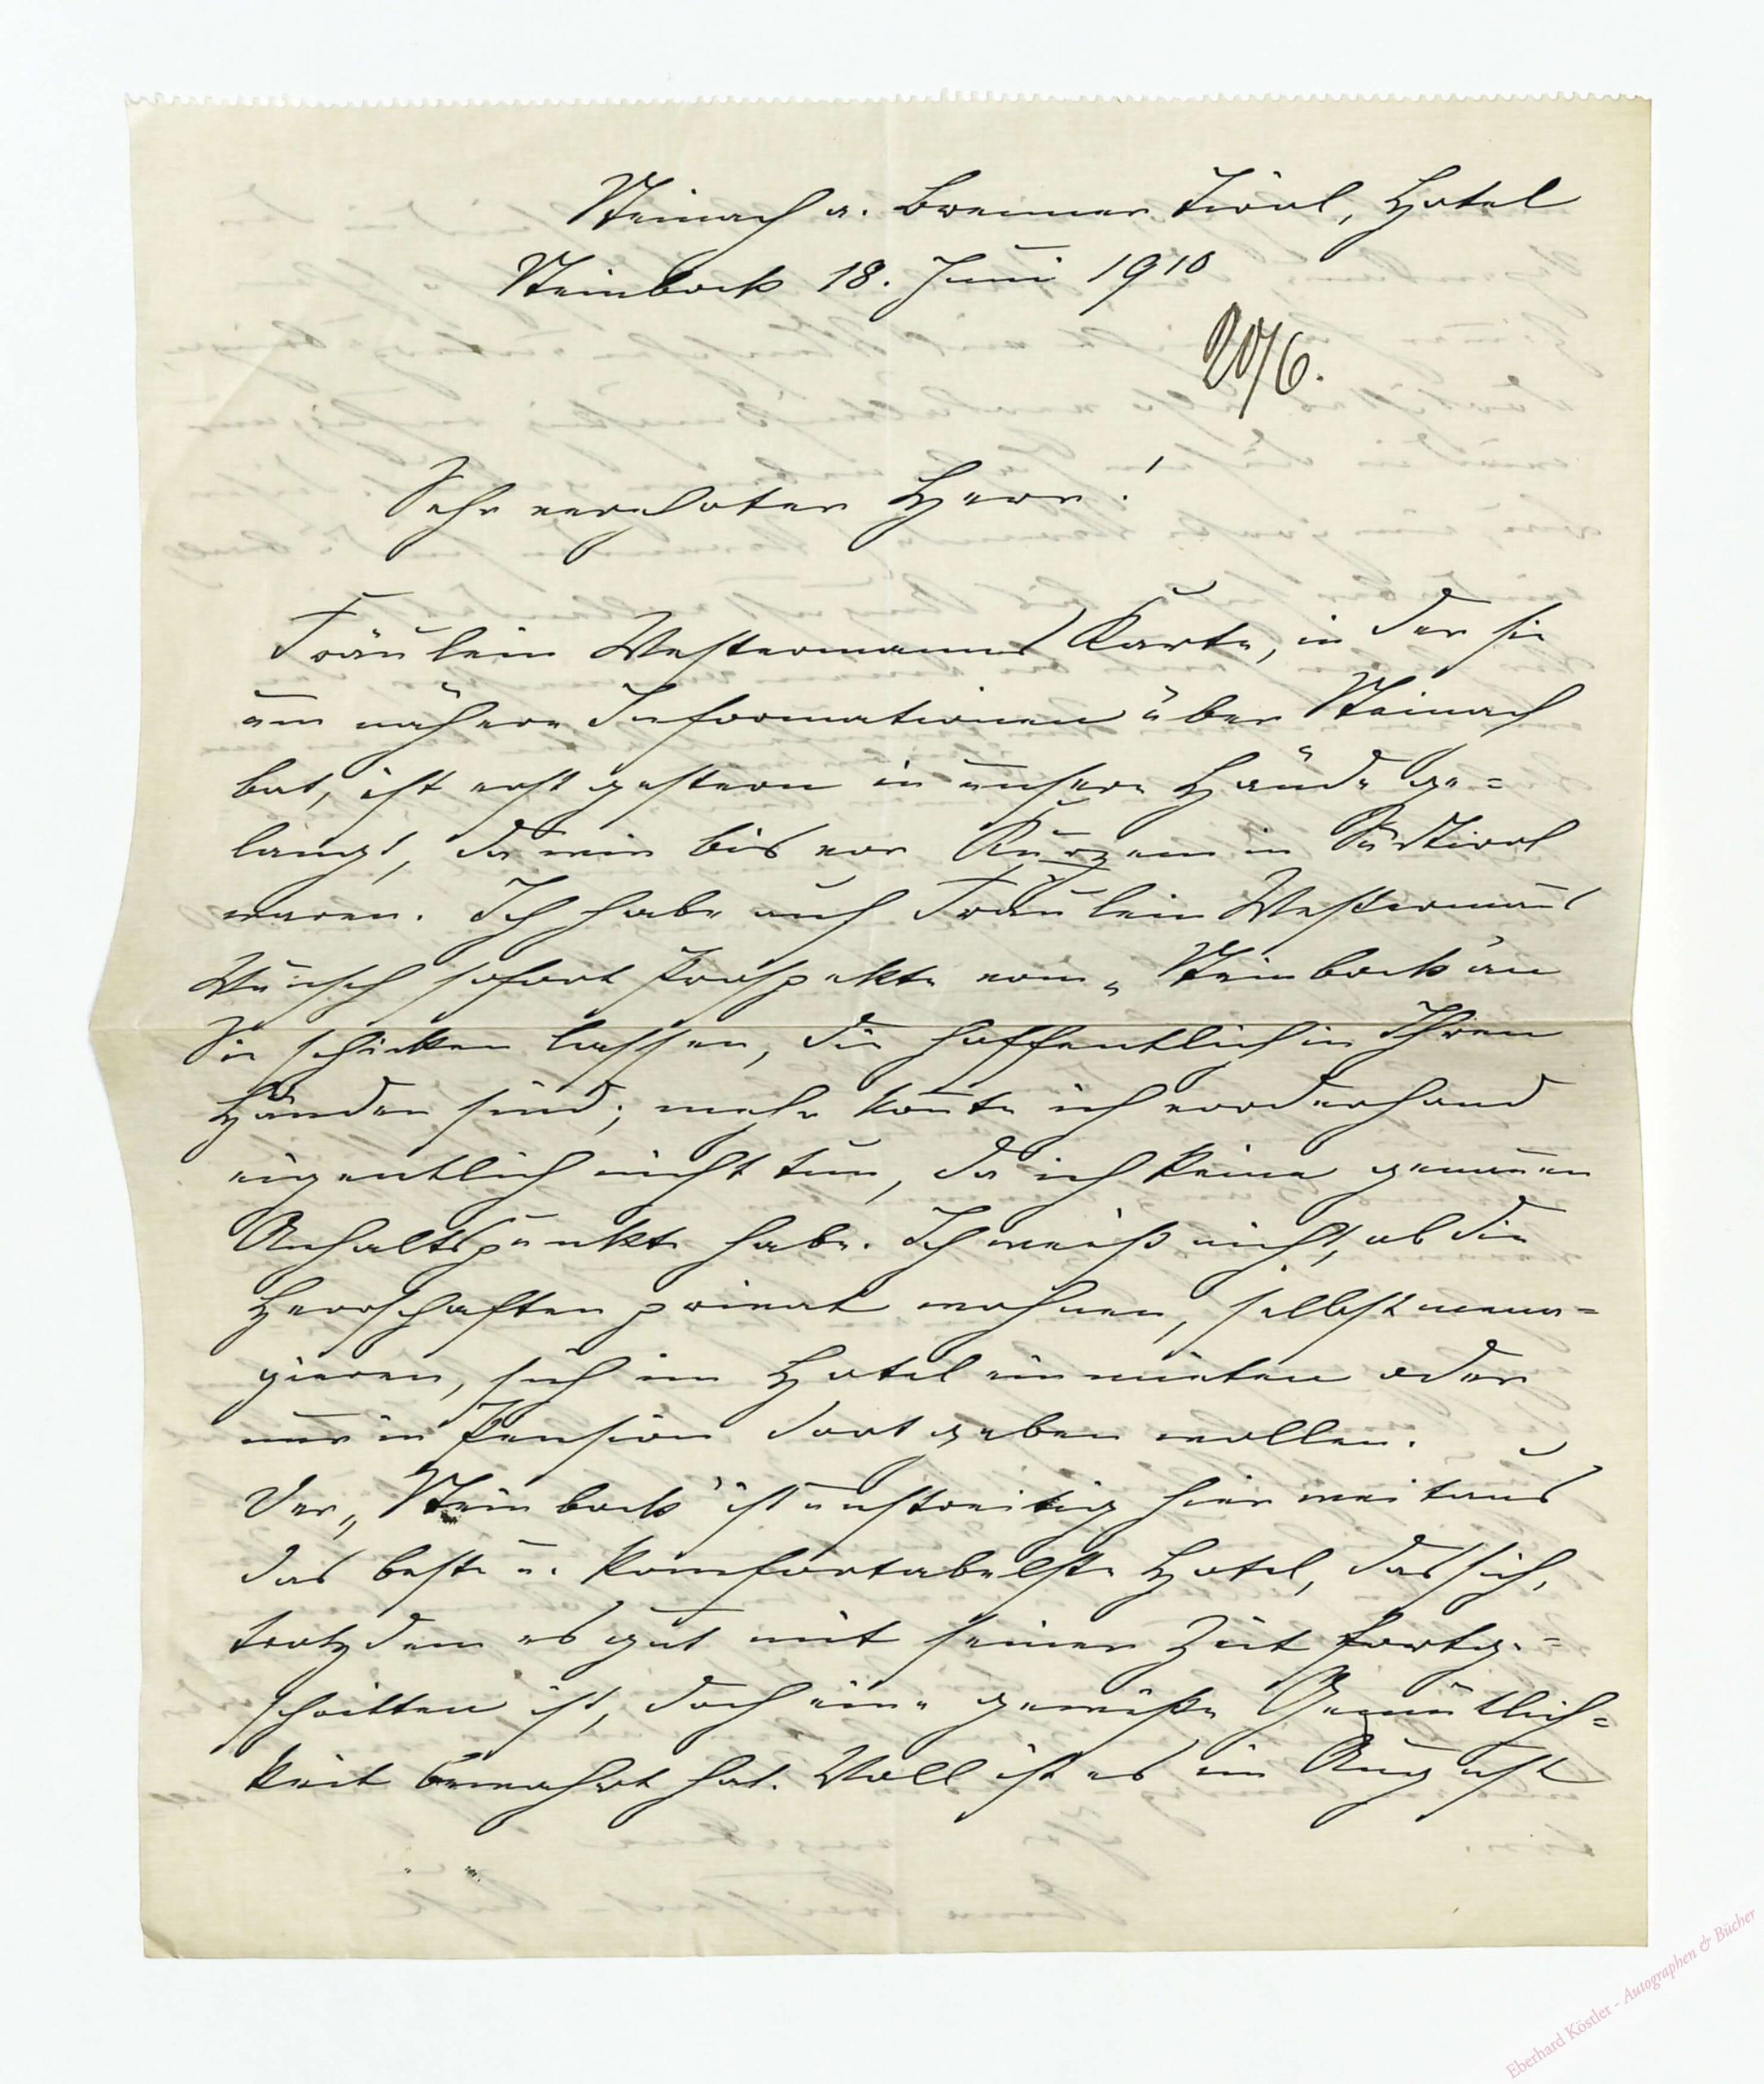 Steinach a. Brenner Tirol, Hotel
Steinbock 18. Juni 1910
20/6.
Sehr verehrter Herr!
Fräulein Westermanns Karte, in der sie
um nähere Informationen über Steinach
bat, ist erst gestern in unsere Hände ge=
langt, da wir bis vor Kurzem in Südtirol
waren. Ich habe auf Fräulein Westermanns
Wunsch sofort Prospekte vom „Steinbock" an
Sie schicken lassen, die hoffentlich in Ihren
Händen sind; mehr konnte ich vorderhand
eigentlich nicht tun, da ich keine genauen
Anhaltspunkte habe. Ich weiß nicht, ob die
Herrschaften privat wohnen, selbst mena=
gieren, sich im Hotel einmieten oder
nur in Pension dort geben wollen.
Der „Steinbock" ist unstreitig hier weitaus
das beste u. komfortabelste Hotel, das sich,
trotzdem es gut mit seiner Zeit fortge=
schritten ist, doch eine gewisse Gemütlich=
keit bewahrt hat. Voll ist es im August
Eberhard Köstler - Autographen & Bücher